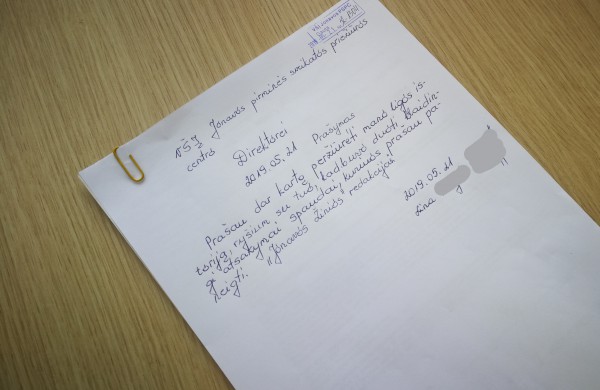 VŠĮ Jonavos pirminės sveikatos priežiūros
centro
Direktorei
2019.05.21
Prašymas
Prašau dar kartą peržiūrėti mano ligos is-
toriją, ryšium su tuo, kad buvo duoti klaidin-
gi atsakymai spaudai, kuriuos prašau pa-
neigti. "Jonavos žinios" redakcijai
2019.05.21
Lina